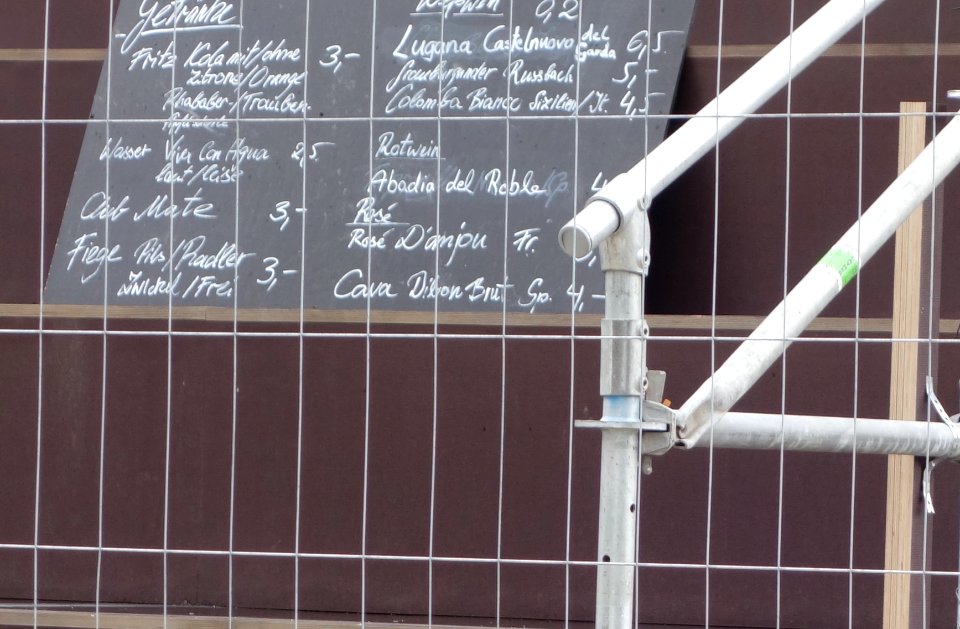 Getränke
Fritz Kola mit/ohne 3,-
Zitrone/Orange
Rhabarber-/Trauben-
Wasser Viva Con Agua 2,5
laut/leise
Club Mate 3,-
Fiege Pils/Radler 3,-
Zwickel/Frei
Weißwein 0,2
Lugana Castelnuovo del Garda 6,5
Grauburgunder Russbach 5,-
Colomba Bianca Sizilien/It. 4,5
Rotwein
Abadia del Roble Sp. 4
Rosé
Rosé D'anjou Fr.
Cava Dibon Brut Sp. 4,-